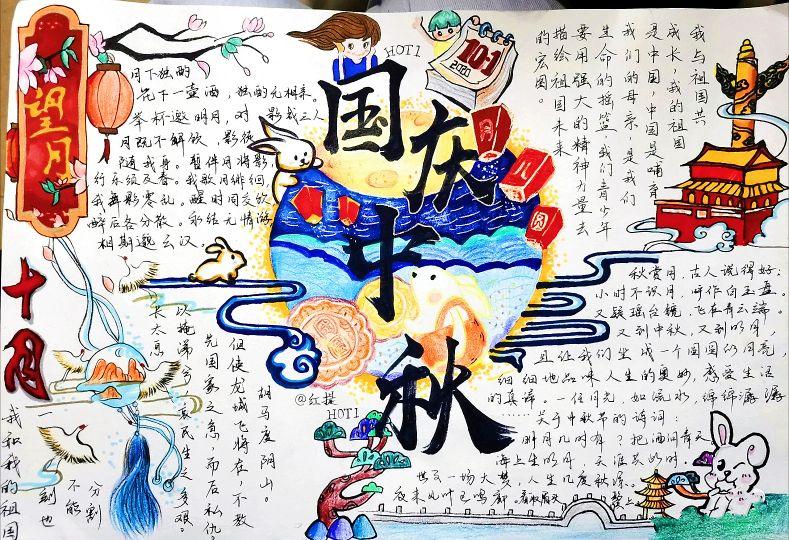 望月
HOT1
10.1
2020
国庆
中秋
月下独酌
花下一壶酒,独酌无相亲。
举杯邀明月,对影成三人
月既不解饮,影徒
随我身。暂伴月将影,
行乐须及春。我歌月徘徊,
我舞影零乱。醒时同交欢,
醉后各分散。永结无情游
相期邈云汉。
我与祖国共
成长,我的祖国
是中国,中国是哺育
我们的母亲,是我们
生命的摇篮,我们青少年
要用强大的精神力量去
描绘祖国未来
的宏图。
月
儿
圆
十月
长太息
以掩涕兮,哀民生之多艰。
先国家之急,而后私仇。
但使龙城飞将在 不教
胡马度阴山。
我和我的祖国
一刻也
不能
分割
@红提
HOT1
秋赏月,古人说得好:
小时不识月,呼作白玉盘。
又疑瑶台镜,飞在青云端。
又到中秋,又到明月,
且让我们坐成一个圆圆的月亮,
细细地品味人生的奥妙,感爱生活
的真谛。一任月光,如流水,绵绵潺潺
……关于中秋节的诗词:
明月几时有?把酒问青天
海上生明月,天涯共此时。
世事一场大梦,人生几度秋凉。
夜来风叶已鸣廊,看取眉头